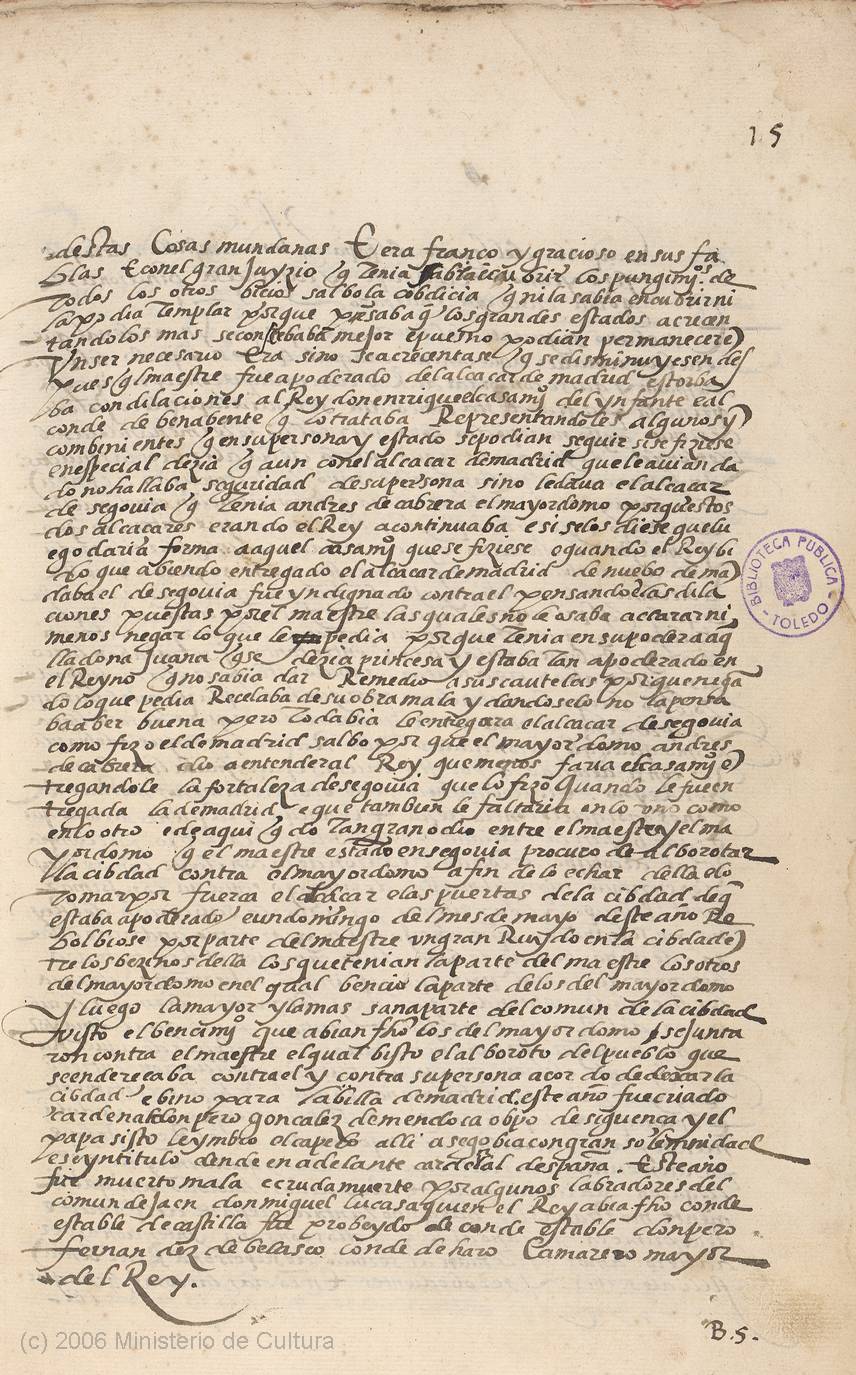 15
destas Cosas mundanas E era franco y gracioso en sus fa
blas E con el gran Juyzio q̃ tenia sabia encubrir los pungimjos de
todos los otros bicios salbo la cobdicia q̃ ni la sabia encubrir ni
la podia templar porque pensaba q̃ los grandes estados acrecen
tandolos mas se conserbaban mejor e pues no podian permanecer e)
Un ser necesario Era sino se acrecentase q̃ se disminuyesen des
pues q̃l maestre fue apoderado del alcacar de madrid estorba
ba con dilaciones al Rey don enrrique el casamjo del ynfante e al
conde de benabente q̃ lo trataba Representandoles algunos yn
combinientes q̃ en su persona y estado se podian seguir si se fiziese
en especial dezia q̃ aun con el alcacar de madrid que le avian da
do no hallaba seguridad de su persona sino le dava el alcacar
de segovia q̃ tenia andres de cabrera el mayordomo porquestos
dos alcacares eran do el Rey a continuaba e si se los diese que lu
ego daria forma a aquel casamjo que se fiziese e quando el Rey bi
do que abiendo entregado el alcacar de madrid de nuebo dema)
daba el de segovia fue yndignado contra el pensando las dila
ciones puestas por el maestre las quales no le osaba acararni
menos negar lo que le pedia porque tenia en su poder a aq̃
lla dona Juana q̃ se dezia princesa y estaba tan apoderado en
el Reyno q̃ no sabia dar Remedio a sus cautelas porque nega
do lo que pedia Recelaba de su obra mala y dandoselo no la pensa
ba aber buena pero todabia le entregara el alcacar de segovia
como fizo el de madrid salbo por que el mayordomo andres
de cabrera dio a entender al Rey que menos faria el casamjo e)
tregandole la fortaleza de segovia que lo fizo quando le fue en
tregada la de madrid e que tambien le faltaria en lo uno como
en lo otro e de aqui q̃do tan gran odio entre el maestre y el ma
yordomo q̃ el maestre estado en segovia procuro de alborotar
la cibdad contra el mayordomo a fin de lo echar della e lo
tomar por fuerca el alcacar e las puertas de la cibdad de q̃
estaba apoderado e un domingo del mes de mayo deste año Re
bolbiose por parte del maestre un gran Ruydo en la cibdad e)
tre los bezinos della los que tenian la parte del maestre los otros
del mayordomo en el qual bencio la parte de los del mayordomo
y luego la mayor y la mas sana parte del comun de la cibdad
visto el bencimjo que abian fho los del mayordomo se junta
ron contra el maestre el qual bisto el alboroto del pueblo que
se enderecaba contra el y contra su persona acordo de dexar la
cibdad e bino para la billa de madrid, este año fue criado
cardenal don pero goncalez de mendoca obpo de siguenca y el
papa sisto le ymbio el capelo alli a segobia con gran solemnidad
e scyntitulo dende en adelante cardenal despaña. Este año
fue muerto mala e cruda muerte por algunos labradores del
comun de Jaen don miguel lucas a quien el Rey abia fho conde
estable de castilla fue probeydo de conde estable don pero
fernandez de belasco conde de haro Camarero mayor
del Rey.
B. 5.
BIBLIOTECA PUBLICA
- TOLEDO -
(c) 2006 Ministerio de Cultura